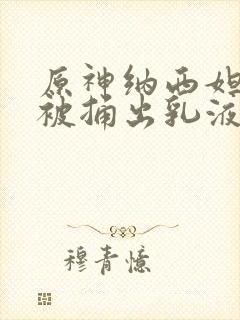 原神纳西妲
被捅出乳液
穆青憶